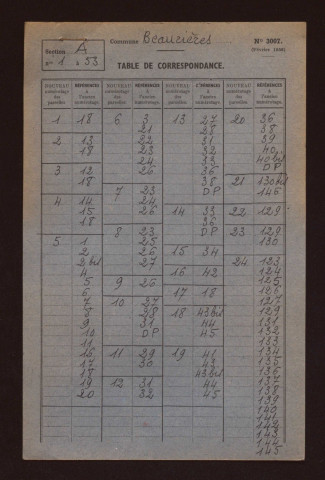 Commune Beaurières
N° 3007.
Section A
n° 1 à 53
TABLE DE CORRESPONDANCE.
NOUVEAU numérotage des parcelles RÉFÉRENCES à l'ancien numérotage. NOUVEAU numérotage des parcelles RÉFÉRENCES à l'ancien numérotage. NOUVEAU numérotage des parcelles RÉFÉRENCES à l'ancien numérotage. NOUVEAU numérotage des parcelles RÉFÉRENCES à l'ancien numérotage.
1 18
2 13
18
3 12
18
4 14
15
18
5 1
2
2 bis
4
5
6
7
8
9
10
11
16
17
18
19
20
6 3
21
22
23
24
26
7 23
24
26
8 23
25
26
27
9 26
10 27
28
31
DP
11 29
30
12 31
32
13 27
28
31
32
33
36
38
DP
14 33
36
DP
15 34
16 42
17 18
18 43 bis
44
45
19 41
43
43 bis
44
45
20 36
38
39
40
40 bis
DP
21 130 bis
146
22 129
23 129
130
24 123
124
125
126
127
129
131
132
133
134
135
136
137
138
139
140
141
142
143
144
145